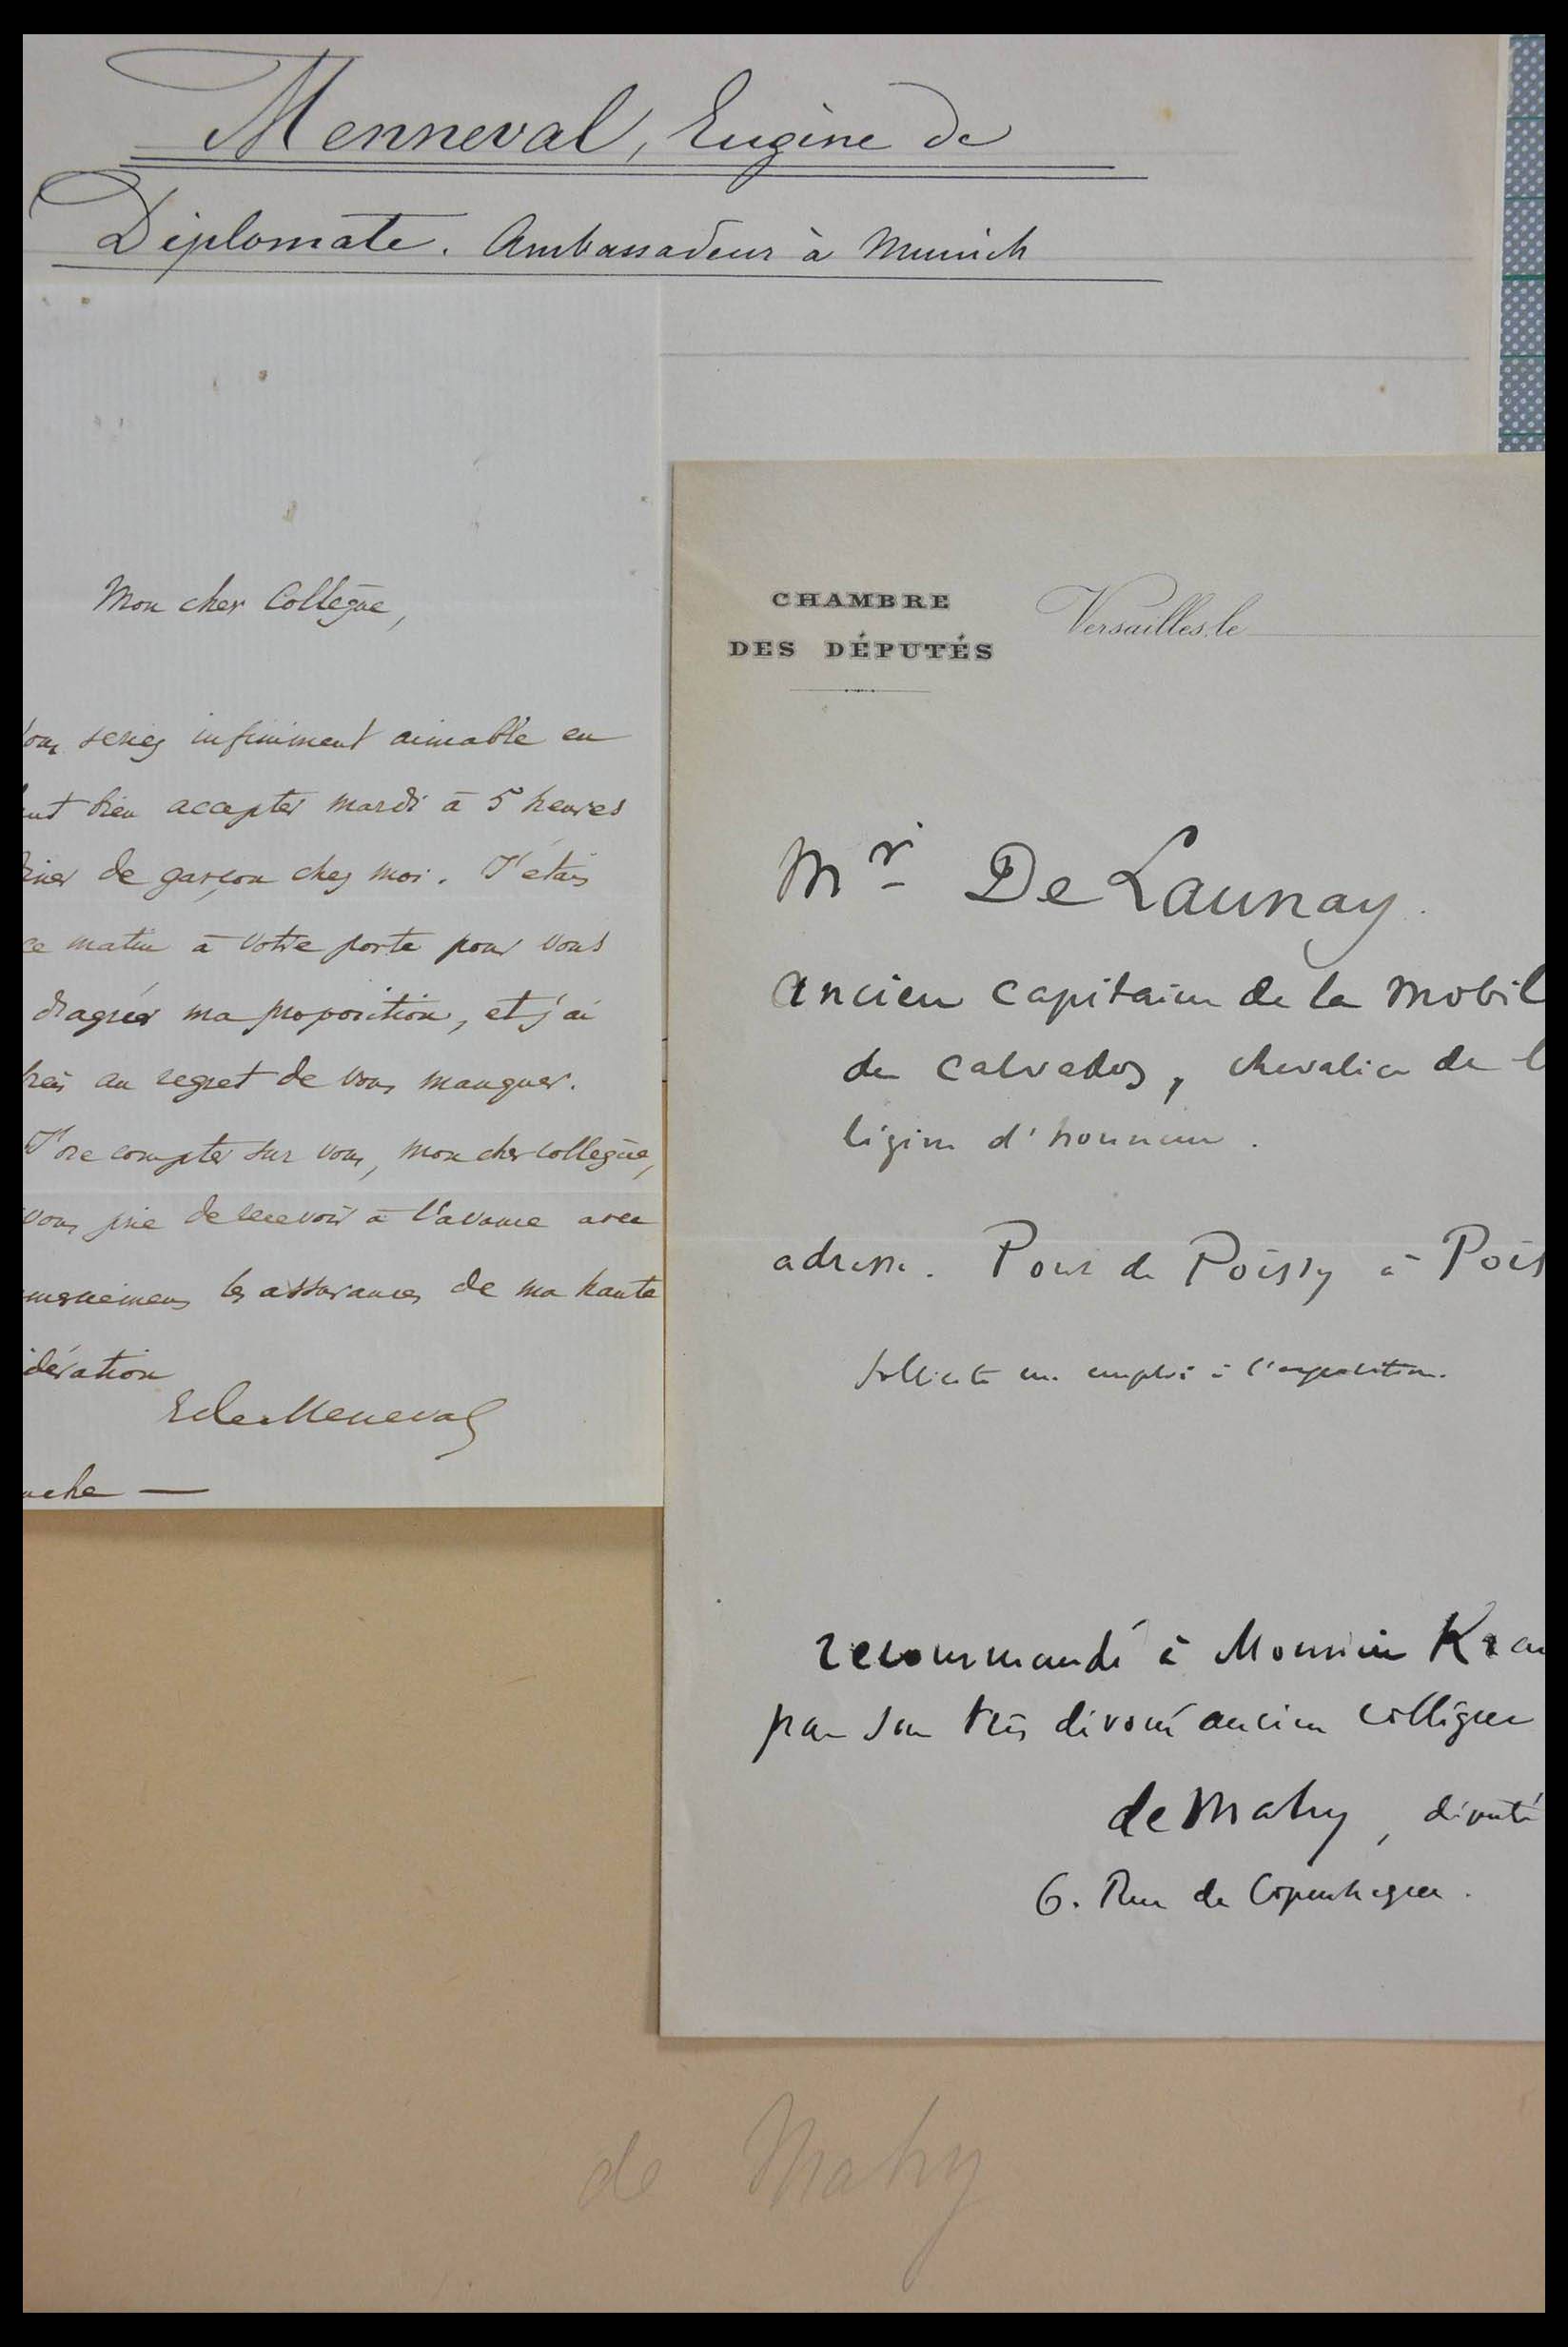 Menneval, Eugène de
Diplomate. Ambassadeur à Munich
Mon cher Collègue,
seriez infiniment aimable en
bien accepter mardi à 5 heures
de garçon chez moi. J'étais
ce matin à votre porte pour vous
d'agréer ma proposition, et j'ai
au regret de vous manquer.
J'ose compter sur vous, mon cher collègue,
vous prie de recevoir à l'avance avec
les assurances de ma haute
idération
E de Meneval
nche —
CHAMBRE
DES DÉPUTÉS
Versailles, le
Mr De Launay.
ancien capitaine de la mobil
du calvados, chevalier de l
légion d'honneur.
adresse. Pour de Poissy à Pois
sollicite un emploi à l'exposition.
recommandé à Monsieur Kran
par son très dévoué ancien collègue
de Mahy, député
6. Rue de Copenhague.
de Mahy